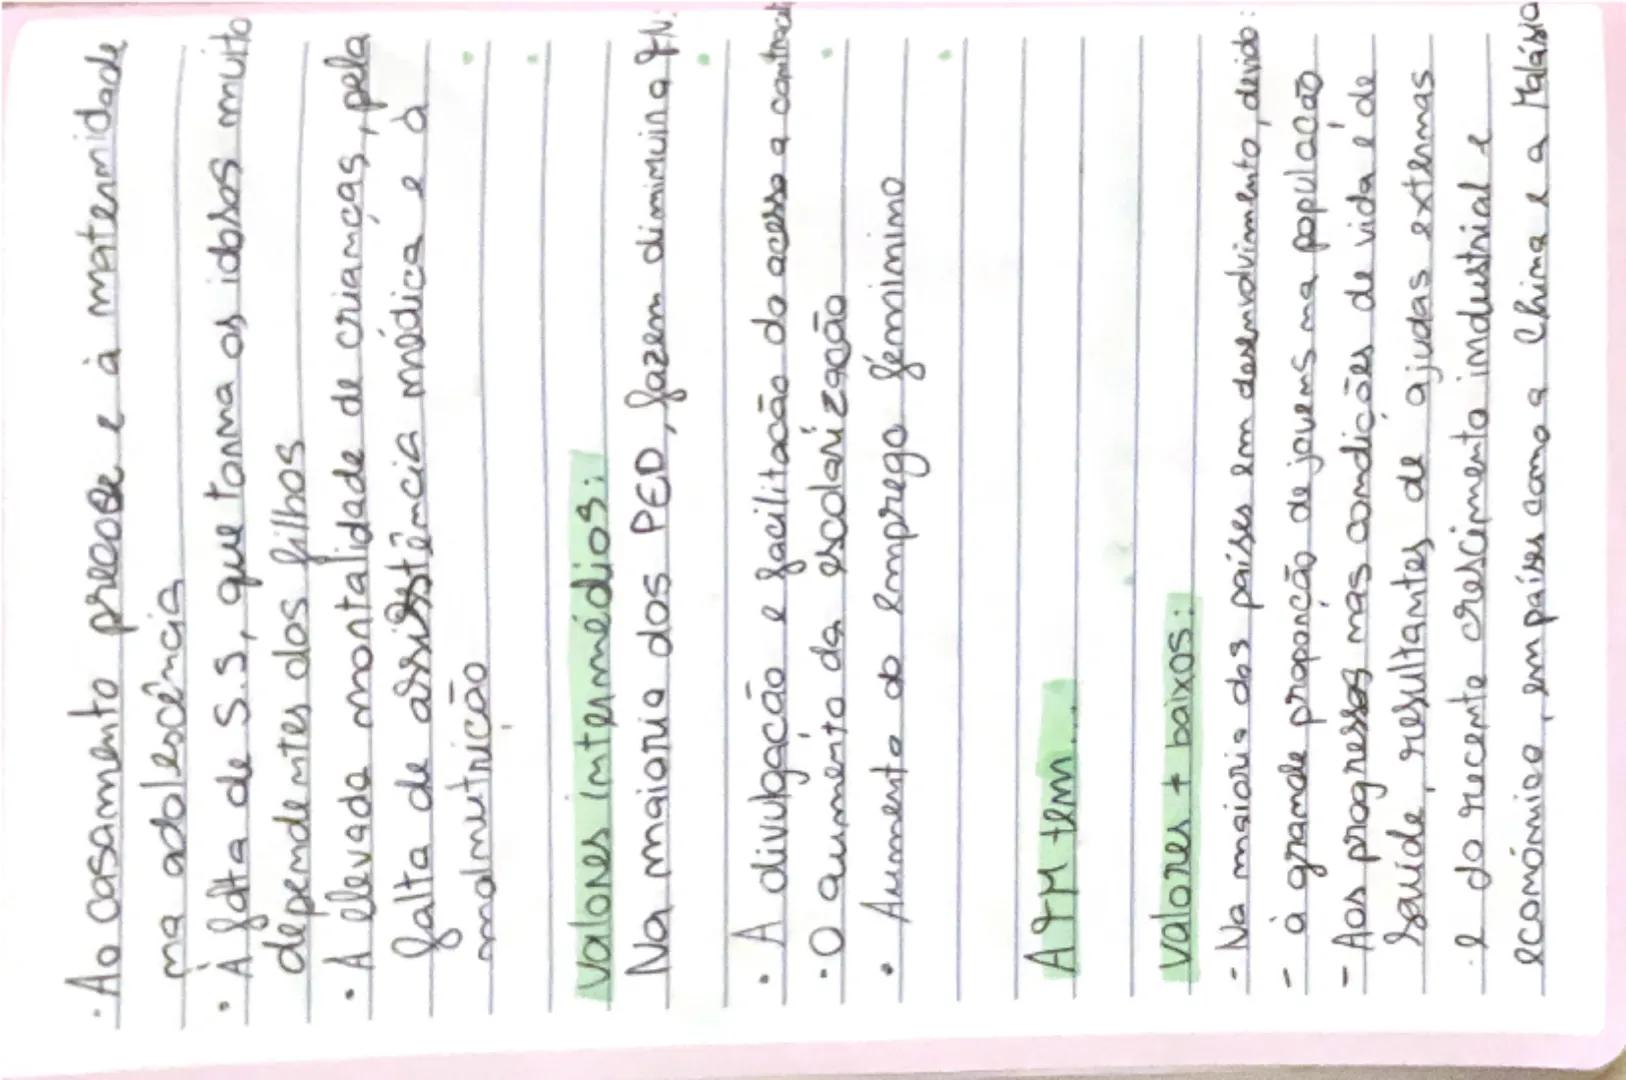 · Ao casamento precose e à maternidade
na adolescência
· À falta de S.S, que torna os idosos muito
dependentes dos filhos
· A elevada mortalidade de crianças, pela
falta de assistência médica e à
malnutrição
Valores intermédios:
Na maioria dos PED, fazem diminuir a TN:
· A divulgação e facilitação do acesso a
· O aumento da escolarização
· Aumento do emprego feminino
A TM tem...
Valores + baixos:
- Na maioria dos países em desenvolvimento, devido:
- à grande proporção de jovens na população
- Aos progressos nas condições de vida e de
Saúde, resultantes de ajudas externas
e do recente crescimento industrial e
económico, em países como a China e a Malásia